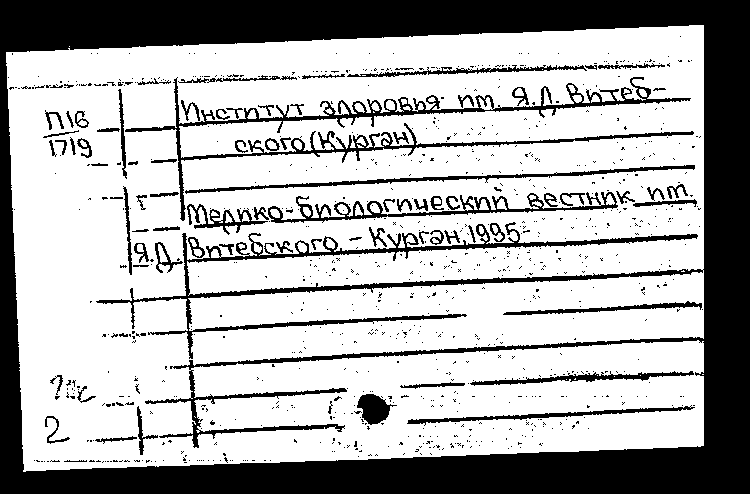 П16
1719
Институт здоровья им. Я.Д. Витеб-
ского (Курган)
Медико-биологический вестник им.
Я.Д. Витебского. - Курган, 1995-
2